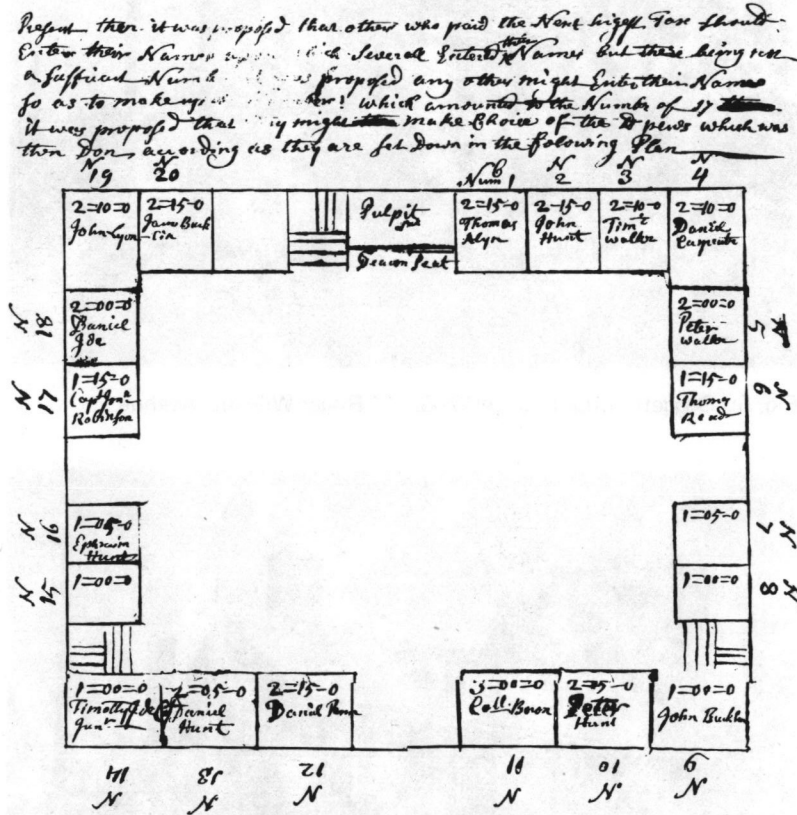 Present then it was proposd that other who paid the Next higest Tax should
Enter their Names which Severall Entered their Names but there being not
a suffician Numb proposed any other might Enter their Names
so as to make up which amounted to the Number of 17
it was proposd that they might make Choice of the pews which was
then Don according as they are set Down in the folowing Plan
N 19
N 20
Numb 1
N 2
N 3
N 4
2=10=0
John Lyon
2=15-0
Pulpit
Deacon Seat
2-15-0
Thomas
2-15-0
John
Hunt
2=10-0
Timt
walker
2=10-0
Daniel
Carpenter
N 18
2=00=0
Daniel
Ide
2=00=0
Peter
walker
5
N 17
1=15-0
Capt Jonn
Robinson
1=15-0
Thomas
Read
N 6
N 16
1=05-0
Ephraim
Hunt
1=05-0
N 7
N 15
1=00=0
1=00=0
N 8
1=00=0
Timothy Ide
Junr
2=05-0
Daniel
Hunt
2=15-0
Daniel
3=00=0
Coll Bowen
2=05-0
Peter
Hunt
1=00=0
John
14 N
13 N
12 N
11 N
10 N
9 N